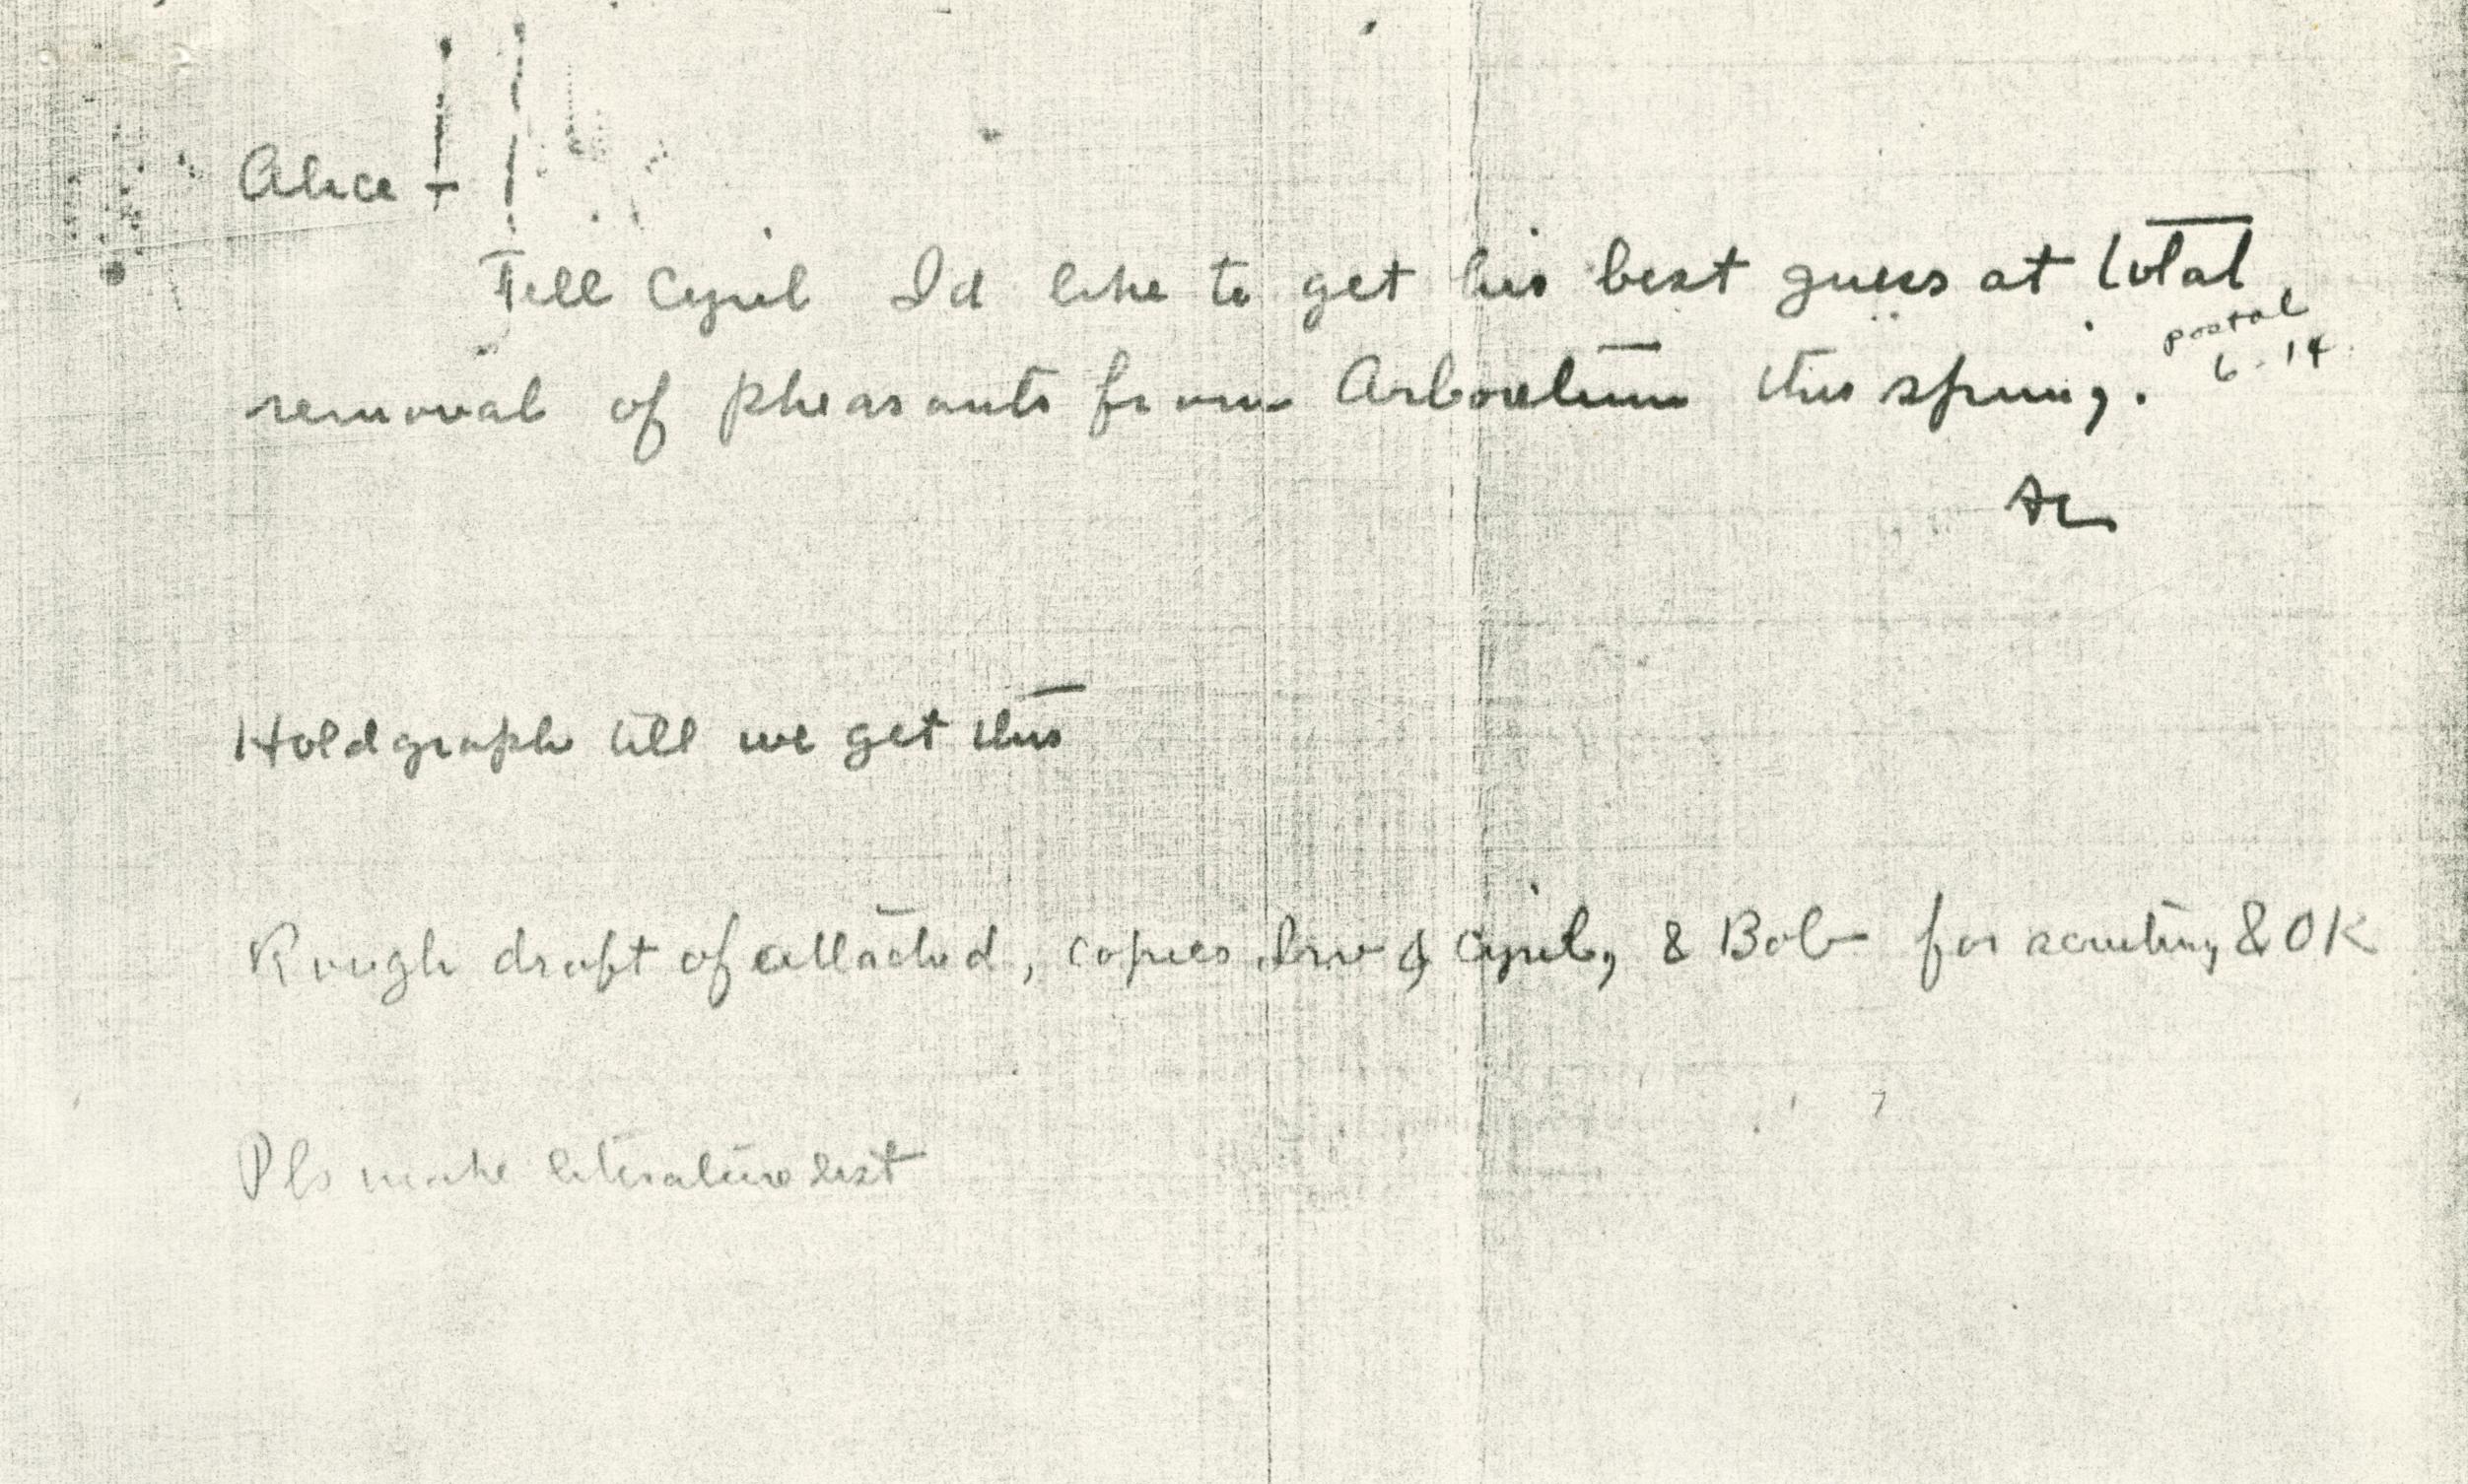 Alice -
Tell Cyril I'd like to get his best guess at total
postal
6-14
removal of pheasants from Arboretum this spring.
AL
Hold graph till we get this
Rough draft of attached, copies Irv & Cyril, & Bob for scrutiny & OK
Pls make literature list